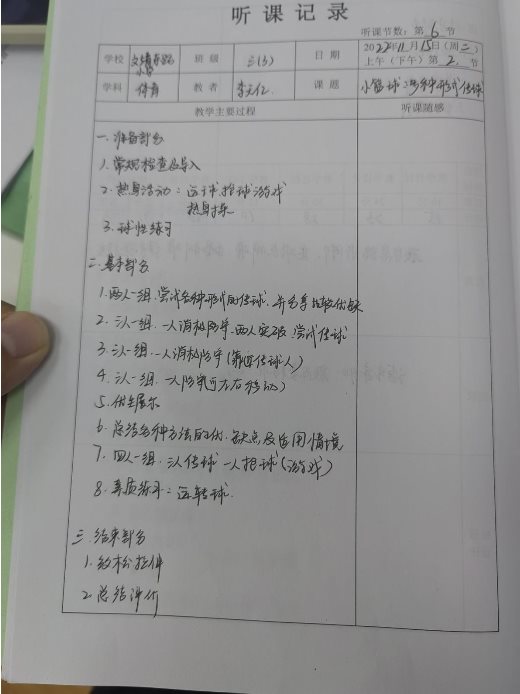 听课记录
听课节数：第 6 节
学校 班级 三(3) 日期 2022年11月15日(周二)
上午(下午)第 2 节
学科 体育 教者 课题 小篮球：多种形式传球
教学主要过程 听课随感
一、准备部分
1. 常规检查与导入
2. 热身活动：运球抢球游戏
热身操
3. 球性练习
二、基本部分
1. 两人一组，尝试各种形式的传球，并分享优缺
2. 三人一组，一人消极防守，两人实践，尝试传球
3. 三人一组，一人消极防守(靠近传球人)
4. 三人一组，一人防守(可左右移动)
5. 优生展示
6. 总结各种方法的优、缺点及运用情境
7. 四人一组，三人传球一人抢球(游戏)
8. 素质练习：
三、结束部分
1. 放松拉伸
2. 总结评价